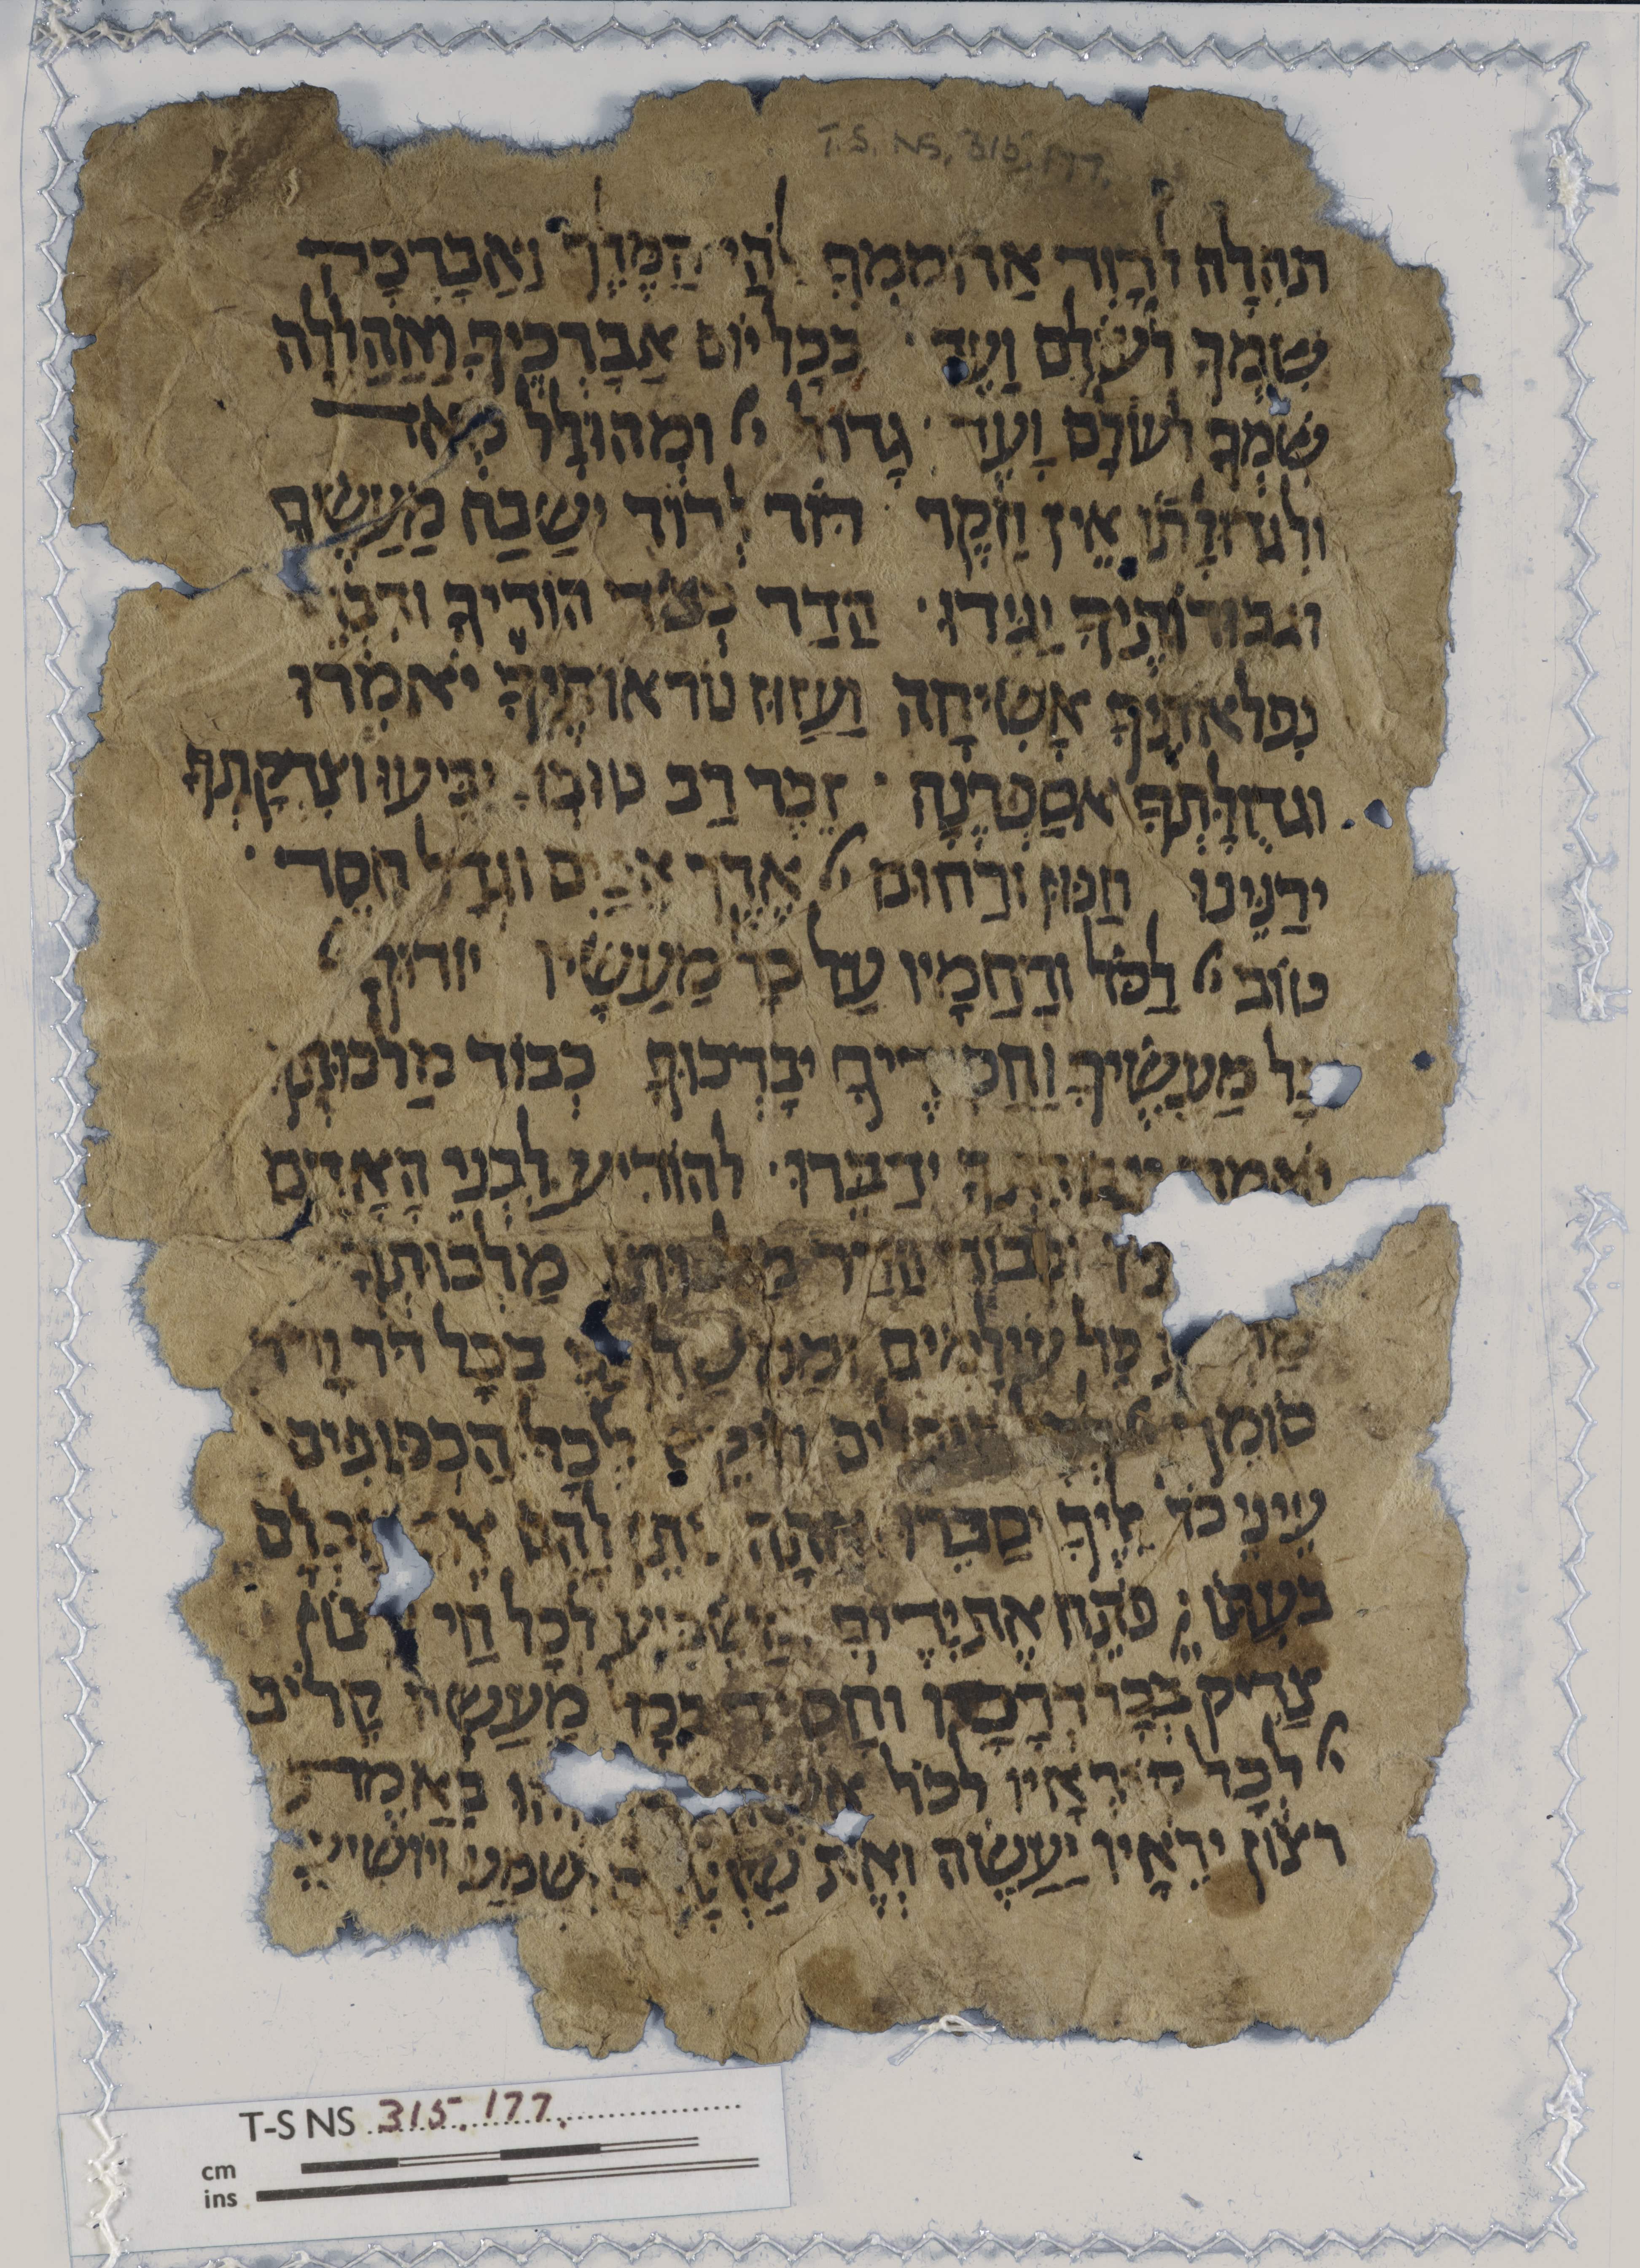 T.S. NS. 315, 177.
תהלה לדוד ארוממך להי המלך ואברכה
שמך לעולם ועד · בכל יום אברכיך ואהללה
שמך לעולם ועד · גדול ומהולל מאד
ולגדולתו אין חקר · דור לדור ישבח מעשיך
וגבורותיך יגידו · הדר כבוד הודיך ודברי
נפלאותיך אשיחה ועזוז נוראותיך יאמרו
וגדולתך אספרנה · זכר רב טובך יביעו וצדקתך
ירנינו חנון ורחום ארך אפים וגדל חסד ·
טוב לכל ורחמיו על כל מעשיו יודוך
כל מעשיך וחסידיך יברכוך כבוד מלכותך
יאמרו וגבורתך ידברו · להודיע לבני האדם
וכבוד הדר מלכותו מלכותך
כל עולמים וממשלתך בכל דר ודר
סומך הנופלים וזוקף לכל הכפופים ·
עיני כל אליך ישברו ואתה נתן להם את אכלם
בעתו פתח את ידיך ומשביע לכל חי רצון
צדיק בכל דרכיו וחסיד בכל מעשיו קרוב
לכל קוראיו לכל אשר באמת
רצון יריאיו יעשה ואת שועתם ישמע ויושיע
T-S NS 315.177.
cm
ins